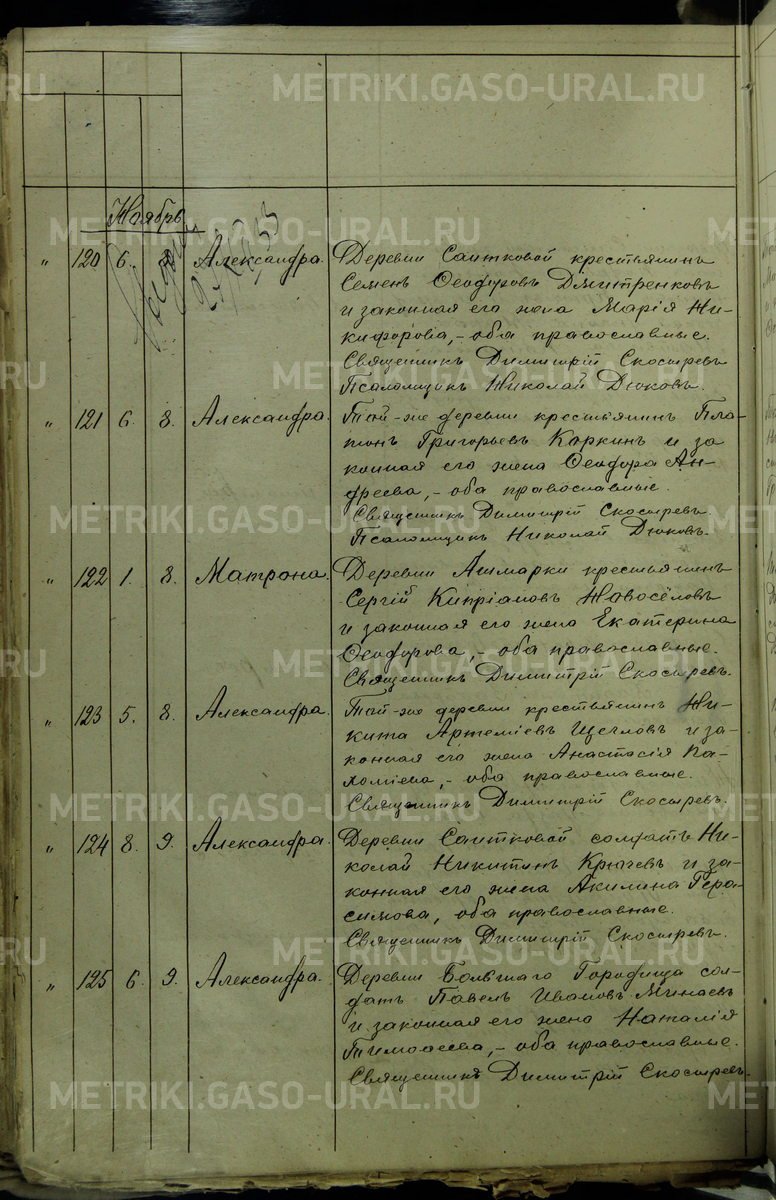 METRIKI.GASO-URAL.RU
Ноябрь
" 120 6. 8. Александра. Деревни Саитковой крестьянинъ
Семенъ Ѳеодоровъ Дмитренковъ
и законная его жена Марія Ни-
кифорова, - оба православные.
Священникъ Димитрій Скосыревъ
Псаломщикъ Николай Дюковъ.
" 121 6. 8. Александра. Той-же деревни крестьянинъ Пла-
тонъ Григорьевъ Каркинъ и за
конная его жена Ѳеодора Ан-
дреева, - оба православные.
Священникъ Димитрій Скосыревъ.
Псаломщикъ Николай Дюковъ.
" 122 1. 8. Матрона. Деревни Ашмарки крестьянинъ
Сергій Кипріановъ Новосёловъ
и законная его жена Екатерина
Ѳеодорова, - оба православные.
Священникъ Димитрій Скосыревъ.
" 123 5. 8. Александра. Той-же деревни крестьянинъ Ни-
кита Артеміевъ Щегловъ и за-
конная его жена Анастасія Па-
хоміева, - оба православные.
Священникъ Димитрій Скосыревъ.
" 124 8. 9. Александра. Деревни Саитковой солдатъ Ни-
колай Никитинъ Крычевъ и за-
конная его жена Акилина Гера-
симова, оба православные.
Священникъ Димитрій Скосыревъ.
" 125 6. 9. Александра. Деревни Большаго Городища сол-
датъ Павелъ Ивановъ Минаевъ
и законная его жена Наталія
Тимоѳеева, - оба православные.
Священникъ Димитрій Скосыревъ.